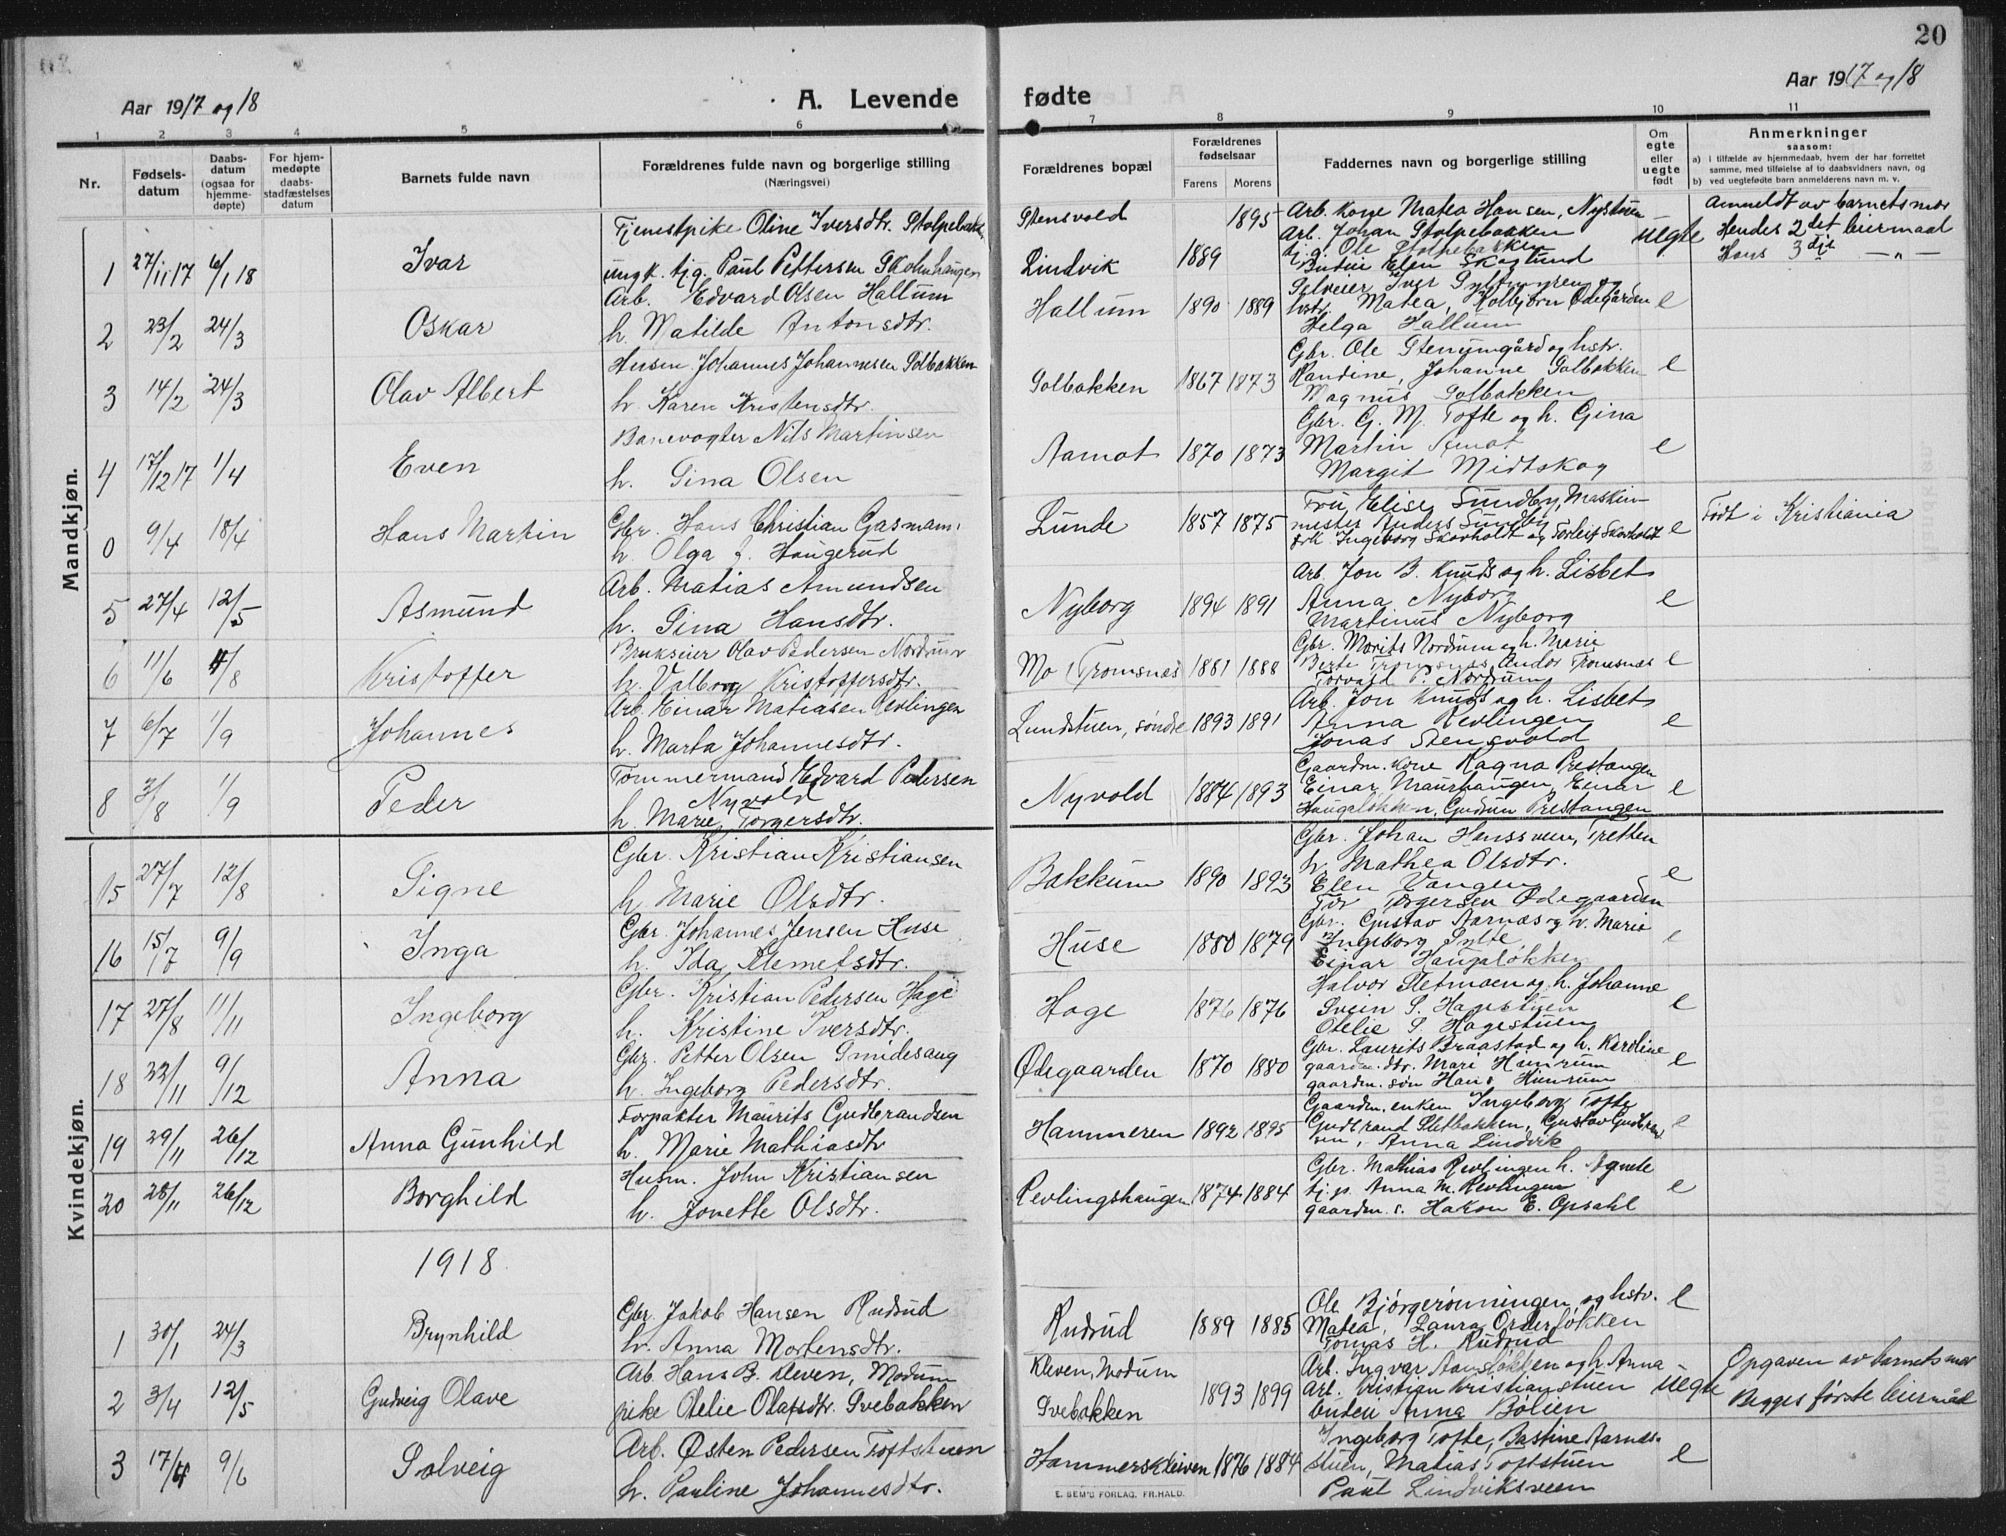 20
Aar 1917 og 18
A. Levende
fødte
Aar 1917 og 18
1 2 3 4 5 6 7 8 9 10 11
Nr.
Fødsels-datum
Daabs-datum (ogsaa for hjemme-døpte)
For hjem-medøpte daabs-stadfæstelses datum
Barnets fulde navn
Forældrenes fulde navn og borgerlige stilling
(Næringsvei)
Forældrenes bopæl
Forældrenes fødselsaar
Farens Morens
Faddernes navn og borgerlige stilling
Om egte eller uegte født
Anmerkninger
saasom:
a) i tilfælde av hjemmedaab, hvem der har forrettet samme, med tilføielse af to daabsvidners navn, og
b) ved uegtefødte barn anmelderens navn m. v.
Mandkjøn.
1 27/11 17 6/1 18 Ivar
Tjenestpike Oline Iversdtr. Stolpebakk.
ungk. tjg. Paul Pettersen Skohushaugen
Stensvold 1895
Lindvik 1889
Arb. kone Matea Hansen, Nystuen
Arb. Johan Stolpebakken
tj.g. Ole Stolpebakken
Budeie Elen Skoglund
uegte
Anmeldt av barnets mor
Hendes 2det leiermaal
Hans 3dje — " —
2 23/2 24/3 Oskar
Arb. Edvard Olsen Hallum
h. Matilde Antonsdtr.
Hallum 1890 1889
Selveier Iver Syltmyren og
hstr. Matea, Kolbjørn Ødegården
Helga Hallum
e
3 14/2 24/3 Olav Albert
Husm. Johannes Johannesen Solbakken
h. Karen Kristensdtr.
Solbakken 1867 1873
Gbr. Ole Stenumgård og hstr.
Randine, Johanne Solbakken
Magnus Solbakken
e
4 17/12 17 1/4 Even
Banevogter Nils Martinsen
h. Gina Olsen
Aamot 1870 1873
Gbr. G. M. Tofte og h. Gina
Martin Amot
Margit Midtskog
e
0 9/4 18/4 Hans Martin
Gbr. Hans Christian Gasmann
h. Olga f. Haugerud
Lunde 1857 1875
Fru Elise Sundby, Maskin-
mester Anders Sundby
frk. Ingeborg Skavholdt og Torleif Skavholdt
e
Født i Kristiania
5 27/4 12/5 Asmund
Arb. Matias Amundsen
h. Gina Hansdtr.
Nyborg 1894 1891
Arb. Jon B. Knuds og h. Lisbet
Anna Nyborg
Martinus Nyborg
e
6 11/6 4/8 Kristoffer
Brukseier Olav Pedersen Nordrum
h. Valborg Kristoffersdtr.
Mo i Tromsnes 1881 1888
Gbr. Morits Nordrum og h. Marie
Berte Tromsnes, Andor Tromsnes
Torvald P. Nordrum
e
7 6/7 1/9 Johannes
Arb. Einar Matiasen Revlingen
h. Marta Johannesdtr.
Lundstuen, søndre 1893 1891
Arb. Jon Knuds og h. Lisbet
Anna Revlingen
Jonas Stensvold
e
8 3/8 1/9 Peder
Tømmermand Edvard Pedersen
Nyvold
h. Marie Torgersdtr.
Nyvold 1884 1893
Gaardm. kone Ragna Prestangen
Einar Maurhaugen, Einar
Haugaløkken, Gudrun Prestangen
e
Kvindekjøn.
15 27/7 12/8 Signe
Gbr. Kristian Kristiansen
h. Marie Olsdtr.
Bakkum 1890 1893
Gbr. Johan Henssveen, Tretten
h. Mathea Olsdtr.
Elen Vangen
Tor Torgersen Ødegaarden
e
16 15/7 9/9 Inga
Gbr. Johannes Jensen Huse
h. Ida Klemetsdtr.
Huse 1880 1879
Gbr. Gustav Aarnæs og h. Marie
Ingeborg Sylte
Einar Haugaløkken
e
17 27/8 11/11 Ingeborg
Gbr. Kristian Pedersen Hage
h. Kristine Iversdtr.
Hage 1876 1876
Halvor Sletmoen og h. Johanne
Svein S. Hagestuen
Otelie S. Hagestuen
e
18 22/11 9/12 Anna
Gbr. Petter Olsen Smidesang
h. Ingeborg Pedersdtr.
Ødegaarden 1870 1880
Gbr. Laurits Braastad og h. Karoline
gaardm. dtr. Mari Hunrum
gaardm. søn Hans Hunrum
e
19 29/11 26/12 Anna Gunhild
Forpakter Maurits Gudbrandsen
h. Marie Mathiasdtr
Hammeren 1892 1895
Gaardm. enken Ingeborg Tofte
Gudbrand Sletbakken, Gustav Gudbrand
sen, Anna Lindvik
e
20 28/11 26/12 Borghild
Husm. John Kristiansen
h. Jonette Olsdtr.
Revlingshaugen 1874 1884
Gbr. Mathias Revlingen h. Agnete
tj.p. Anna M. Revlingen
gaardm. s. Hakon E. Opsahl
e
1918
1 30/1 24/3 Brynhild
Gbr. Jakob Hansen Rudsud
h. Anna Mortensdtr.
Rudrud 1889 1885
Ole Bjørgerønningen og hstr.
Matea, Laura Orderløkken
Tomas H. Rudrud
e
2 3/4 12/5 Gudveig Olave
Arb. Hans B. Kleven, Modum
pike Otelie Olafsdtr. Svebakken
Kleven, Modum
Svebakken 1893 1899
Arb. Ingvar Aamoløkken og h. Anna
Arb. Kristian Kristianstuen
budeie Anna Bølien
uegte
Opgaven av barnets mor
Begges første leiermål
3 17/4 9/6 Solveig
Arb. Østen Pedersen Toftstuen
h. Pauline Johannesdtr.
Hammerskleiven 1876 1884
Ingeborg Tofte, Bastine Aarnes-
stuen, Matias Toftstuen
Paul Lindviksveen
e
E. SEM'S FORLAG. FR.HALD.